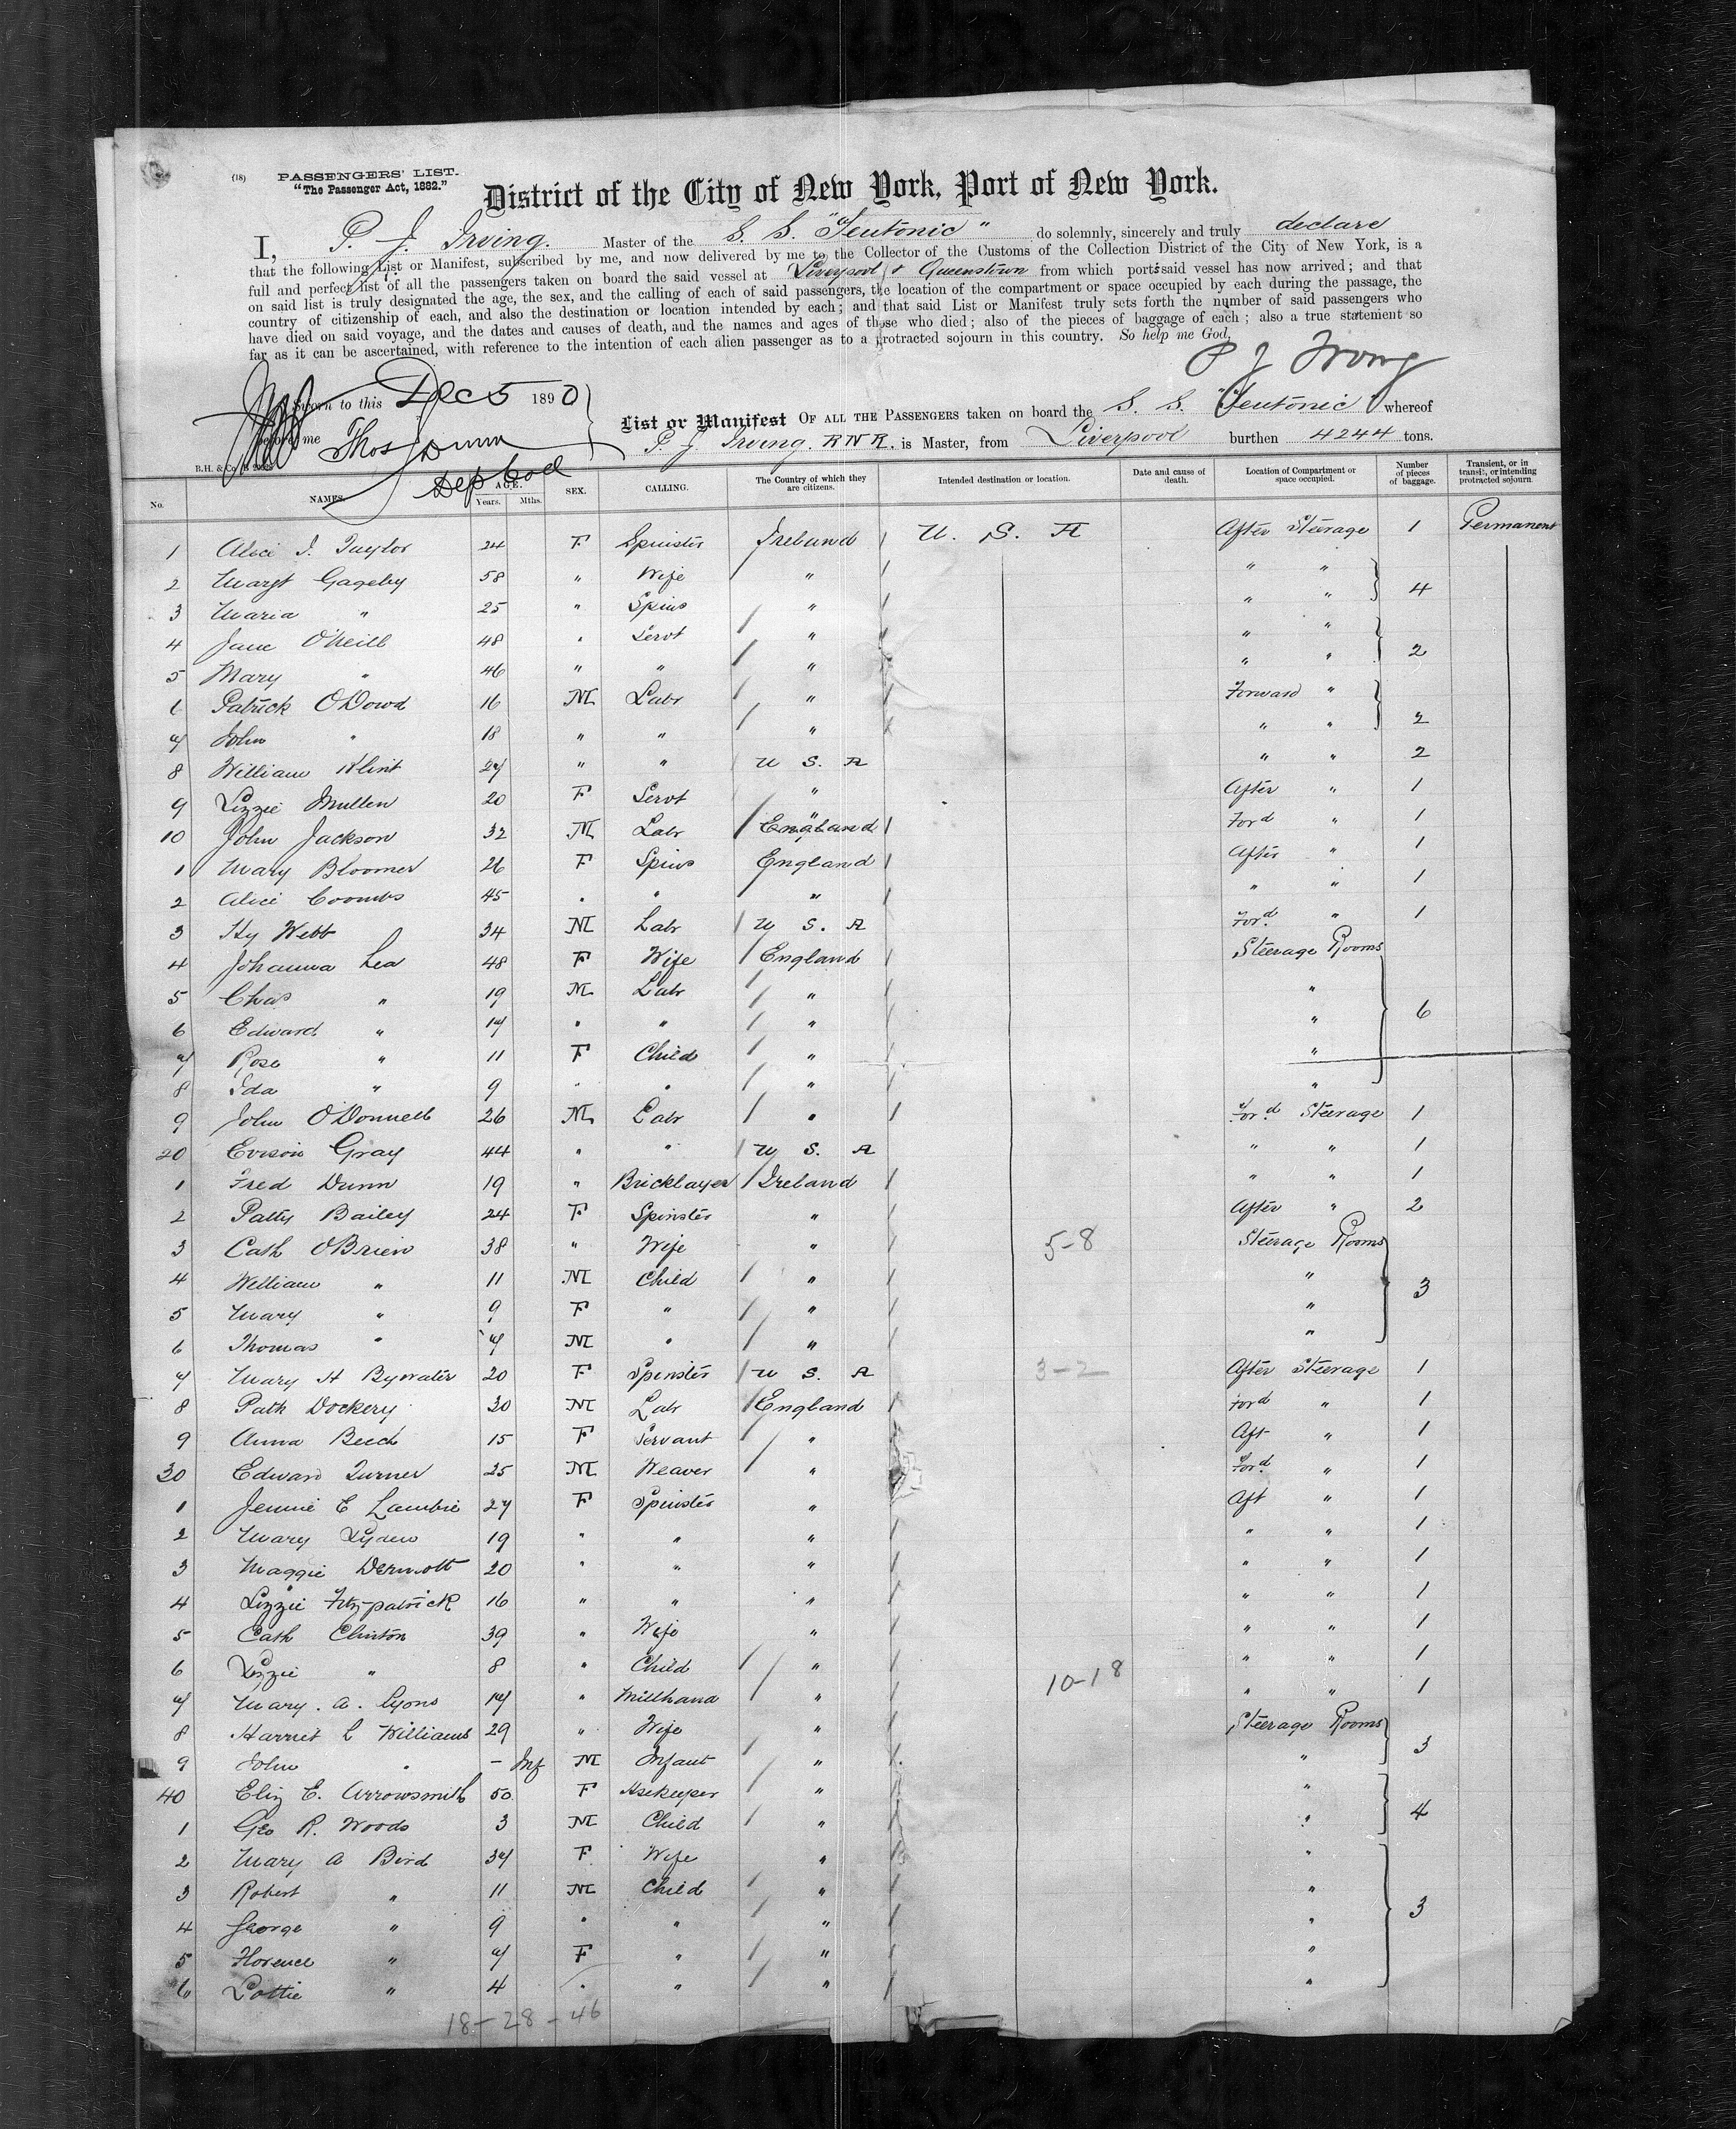 (18) PASSENGERS' LIST.
"The Passenger Act, 1882."
District of the City of New York, Port of New York.
I, P. J. Irving. Master of the S. S. "Teutonic" do solemnly, sincerely and truly declare
that the following List or Manifest, subscribed by me, and now delivered by me to the Collector of the Customs of the Collection District of the City of New York, is a
full and perfect list of all the passengers taken on board the said vessel at Liverpool & Queenstown from which ports said vessel has now arrived; and that
on said list is truly designated the age, the sex, and the calling of each of said passengers, the location of the compartment or space occupied by each during the passage, the
country of citizenship of each, and also the destination or location intended by each; and that said List or Manifest truly sets forth the number of said passengers who
have died on said voyage, and the dates and causes of death, and the names and ages of those who died; also of the pieces of baggage of each; also a true statement so
far as it can be ascertained, with reference to the intention of each alien passenger as to a protracted sojourn in this country. So help me God,
P J Irving
Sworn to this Dec 5 1890
before me Thos Dunn
Dep Col
List or Manifest OF ALL THE PASSENGERS taken on board the S. S. "Teutonic" whereof
P. J. Irving. RNR. is Master, from Liverpool burthen 4244 tons.
B.H. & Co.
No. NAMES. AGE. Years. Mths. SEX. CALLING. The Country of which they are citizens. Intended destination or location. Date and cause of death. Location of Compartment or space occupied. Number of pieces of baggage. Transient, or in transit, or intending protracted sojourn.
1 Alice J. Taylor 24 F Spinster Ireland U. S. A After Steerage 1 Permanent
2 Margt Gageby 58 " Wife " " "
3 Maria " 25 " Spins " " " 4
4 Jane O'Neill 48 " Servt " " "
5 Mary " 46 " " " " " 2
6 Patrick O'Dowd 16 M Labr " Forward "
7 John " 18 " " " " " 2
8 William Klint 27 " " U S. A " " 2
9 Lizzie Mullen 20 F Servt " After " 1
10 John Jackson 32 M Labr England Ford " 1
1 Mary Bloomer 26 F Spins England After " 1
2 Alice Coombs 45 " " " " " 1
3 Hy Webb 34 M Labr U S. A Ford " 1
4 Johanna Lea 48 F Wife England Steerage Rooms
5 Chas " 19 M Labr " "
6 Edward " 17 " " " " 6
7 Rose " 11 F Child " "
8 Ida " 9 " " " "
9 John O'Donnell 26 M Labr " Ford Steerage 1
20 Evison Gray 44 " " U S. A " " 1
1 Fred Dunn 19 " Bricklayer Ireland " " 1
2 Patty Bailey 24 F Spinster " After " 2
3 Cath O'Brien 38 " Wife " 5-8 Steerage Rooms
4 William " 11 M Child " " 3
5 Mary " 9 F " " "
6 Thomas " 7 M " " "
7 Mary H Bywater 20 F Spinster U S. A 3-2 After Steerage 1
8 Patk Dockery 30 M Labr England Ford " 1
9 Anna Beech 15 F Servant " Aft " 1
30 Edward Turner 25 M Weaver " Ford " 1
1 Jennie E Lambie 27 F Spinster " Aft " 1
2 Mary Lyden 19 " " " " " 1
3 Maggie Dermott 20 " " " " " 1
4 Lizzie Fitzpatrick 16 " " " " " 1
5 Cath Clinton 39 " Wife " " " 1
6 Lizzie " 8 " Child " " " 1
7 Mary. A. Lyons 17 " Millhand " 10-18 " " 1
8 Harriet L Williams 29 " Wife " Steerage Rooms
9 John " - Inf M Infant " " 3
40 Eliz E. Arrowsmith 50 F Hsekeeper " "
1 Geo R. Woods 3 M Child " " 4
2 Mary A Bird 37 F Wife " "
3 Robert " 11 M Child " "
4 George " 9 " " " " 3
5 Florence " 7 F " " "
6 Lottie " 4 " " " "
18-28-46